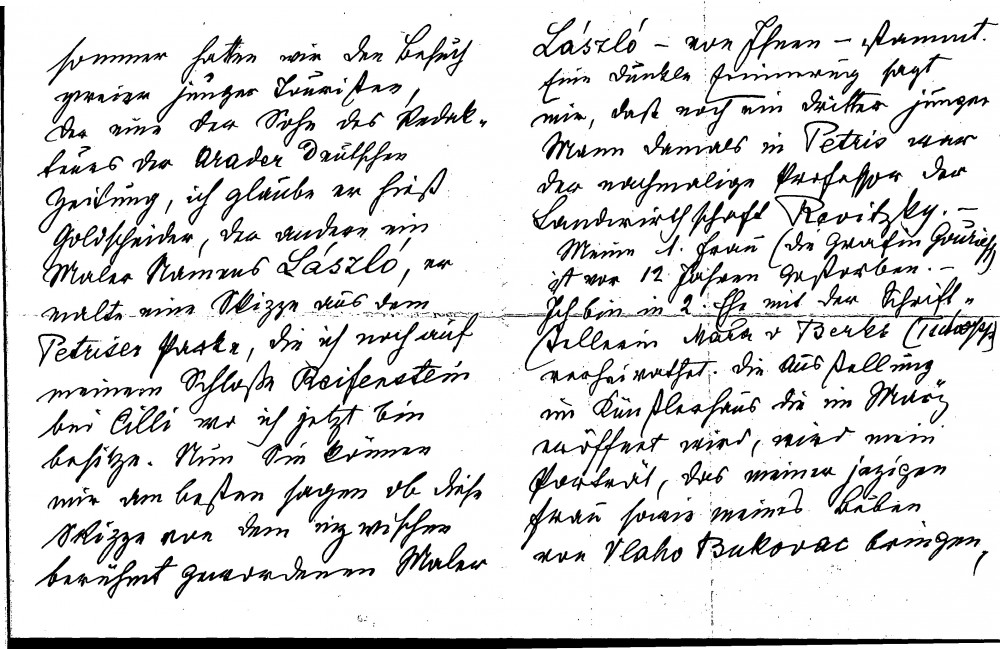 sommer hatten wir den Besuch
zweier junger Touristen,
der eine der Sohn des Redak-
teurs der Arader Deutschen
Zeitung, ich glaube er hieß
Goldscheider, der andere ein
Maler Namens László, er
malte eine Skizze aus dem
Petriser Parke, die ich noch auf
meinem Schloße Reifenstein
bei Cilli wo ich jetzt bin
besitze. Nun Sie können
mir am besten sagen ob diese
Skizze von dem inzwischen
berühmt gewordenen Maler
László – von Ihnen – stammt.
Eine dunkle Erinnerung sagt
mir, daß noch ein dritter junger
Mann damals in Petris war
der nachmalige Professor der
Landwirthschaft Rovitzky. –
Meine 1. Frau (die Gräfin
ist vor 12 Jahren gestorben. –
Ich bin in 2. Ehe mit der Schrift-
stellerin Mara v Berks
verheirathet. Die Ausstellung
im Künstlerhaus die im März
eröffnet wird, wird mein
Porträt, das meiner jezigen
Frau sowie meines Buben
von Vlaho Bukovac bringen,